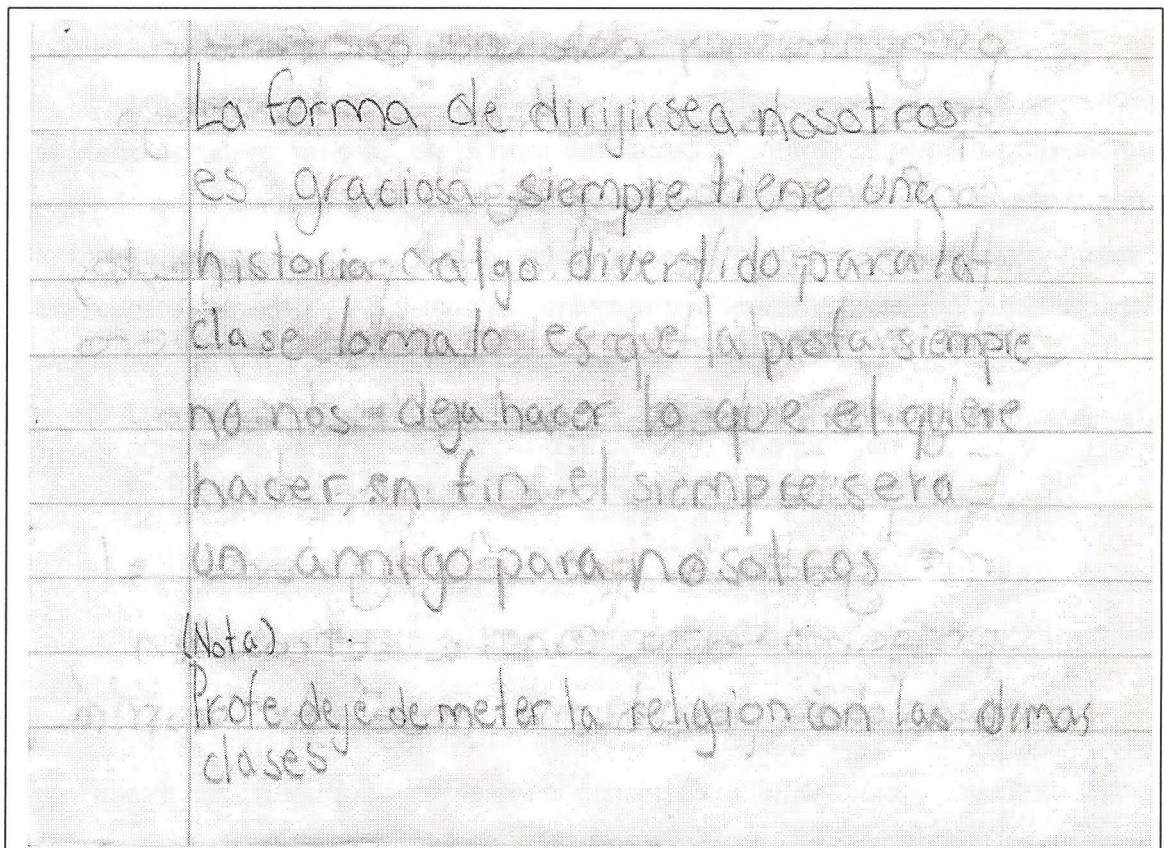 La forma de dirijirsea nosotros
es graciosa siempre tiene una
historia o algo divertido para la
clase lo malo es que la profa siempre
no nos deja hacer lo que el quiere
hacer, en fin el siempre sera
un amigo para nosotros
(Nota)
Profe deje de meter la religion con las demas
clases